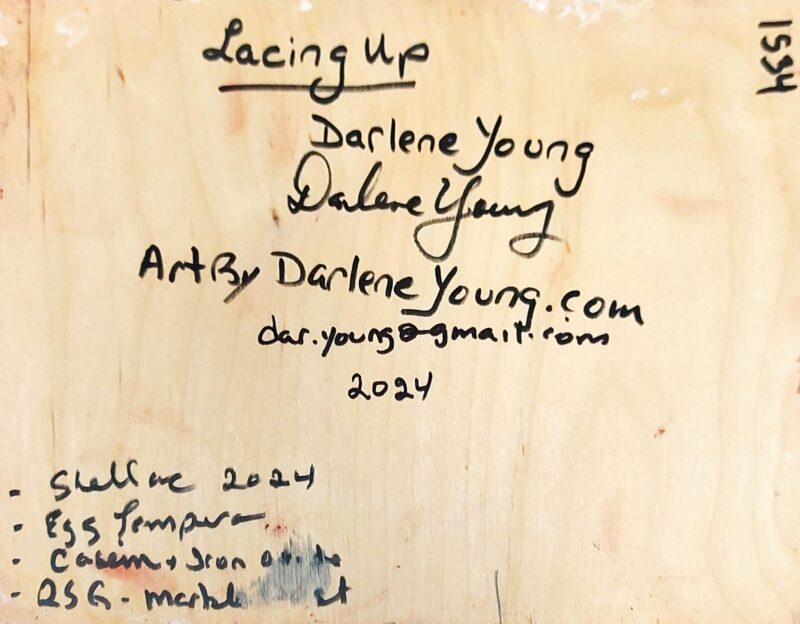 Lacing Up
1554
Darlene Young
Darlene Young
Art By Darlene Young.com
dar.young@gmail.com
2024
- Shellac 2024
- Egg Tempera
- Casein + Iron
- RSG - marble